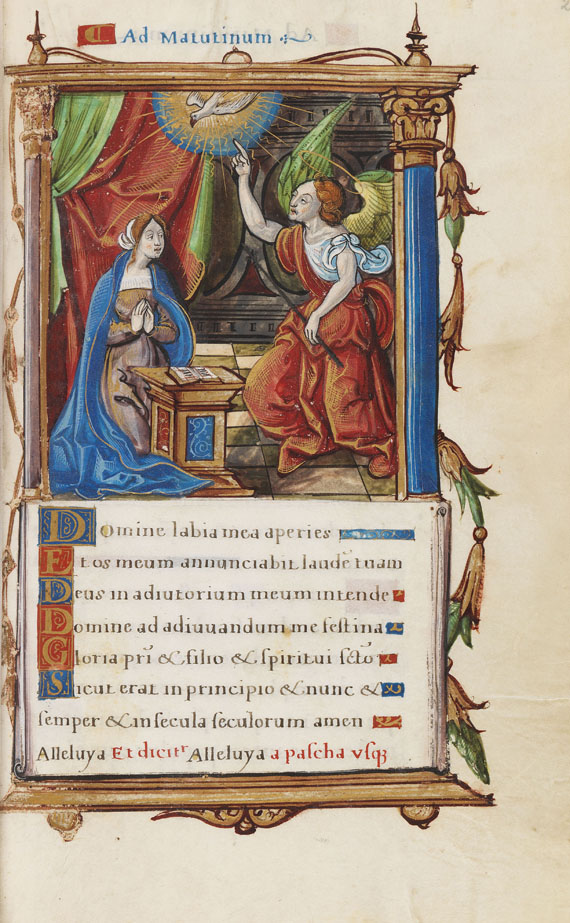 Ad Matutinum
Domine labia mea aperies
Et os meum annunciabit laudē tuam
Deus in adiutorium meum intende
Domine ad adiuuandum me festina
Gloria pr̄i & filio & spiritui sctō
Sicut erat in principio & nunc &
semper & in secula seculorum amen
Alleluya Et dicitr Alleluya a pascha vsqꝫ